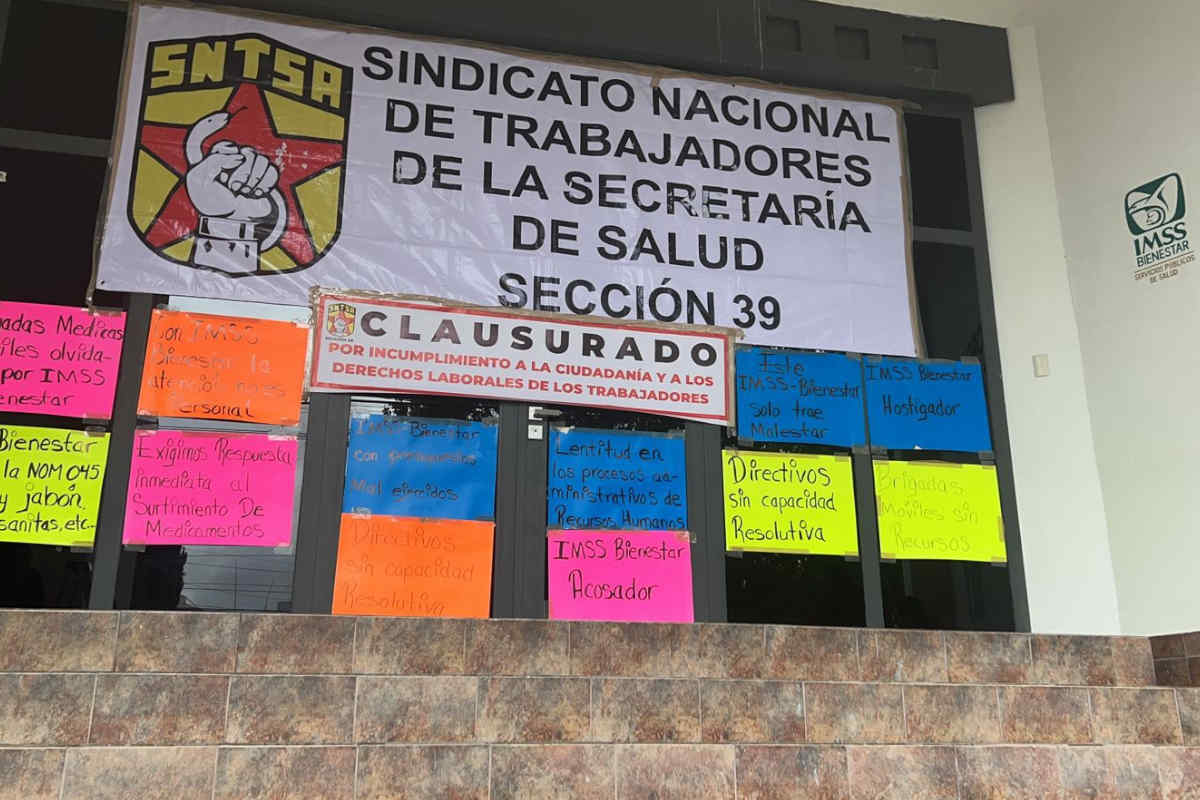 SNTSA
SINDICATO NACIONAL
DE TRABAJADORES
DE LA SECRETARÍA
DE SALUD
SECCIÓN 39
IMSS
BIENESTAR
SERVICIOS PÚBLICOS
DE SALUD
SNTSA
CLAUSURADO
POR INCUMPLIMIENTO A LA CIUDADANÍA Y A LOS
DERECHOS LABORALES DE LOS TRABAJADORES
Medicas
olvida-
por IMSS
enestar
Con IMSS
Bienestar la
atencion no es
Personal
Este
IMSS-Bienestar
solo trae
Malestar
IMSS Bienestar
Hostigador
Bienestar
la NOM 045
y jabón,
sanitas, etc...
Exigimos Respuesta
Inmediata al
Surtimiento De
Medicamentos
IMSS-Bienestar
con
Mal ejercidos
Lentitud en
los procesos ad-
ministrativos de
Recursos Humanos
Directivos
sin capacidad
Resolutiva
Brigadas
Móviles sin
Recursos
Directivos
sin capacidad
Resolutiva
IMSS Bienestar
Acosador